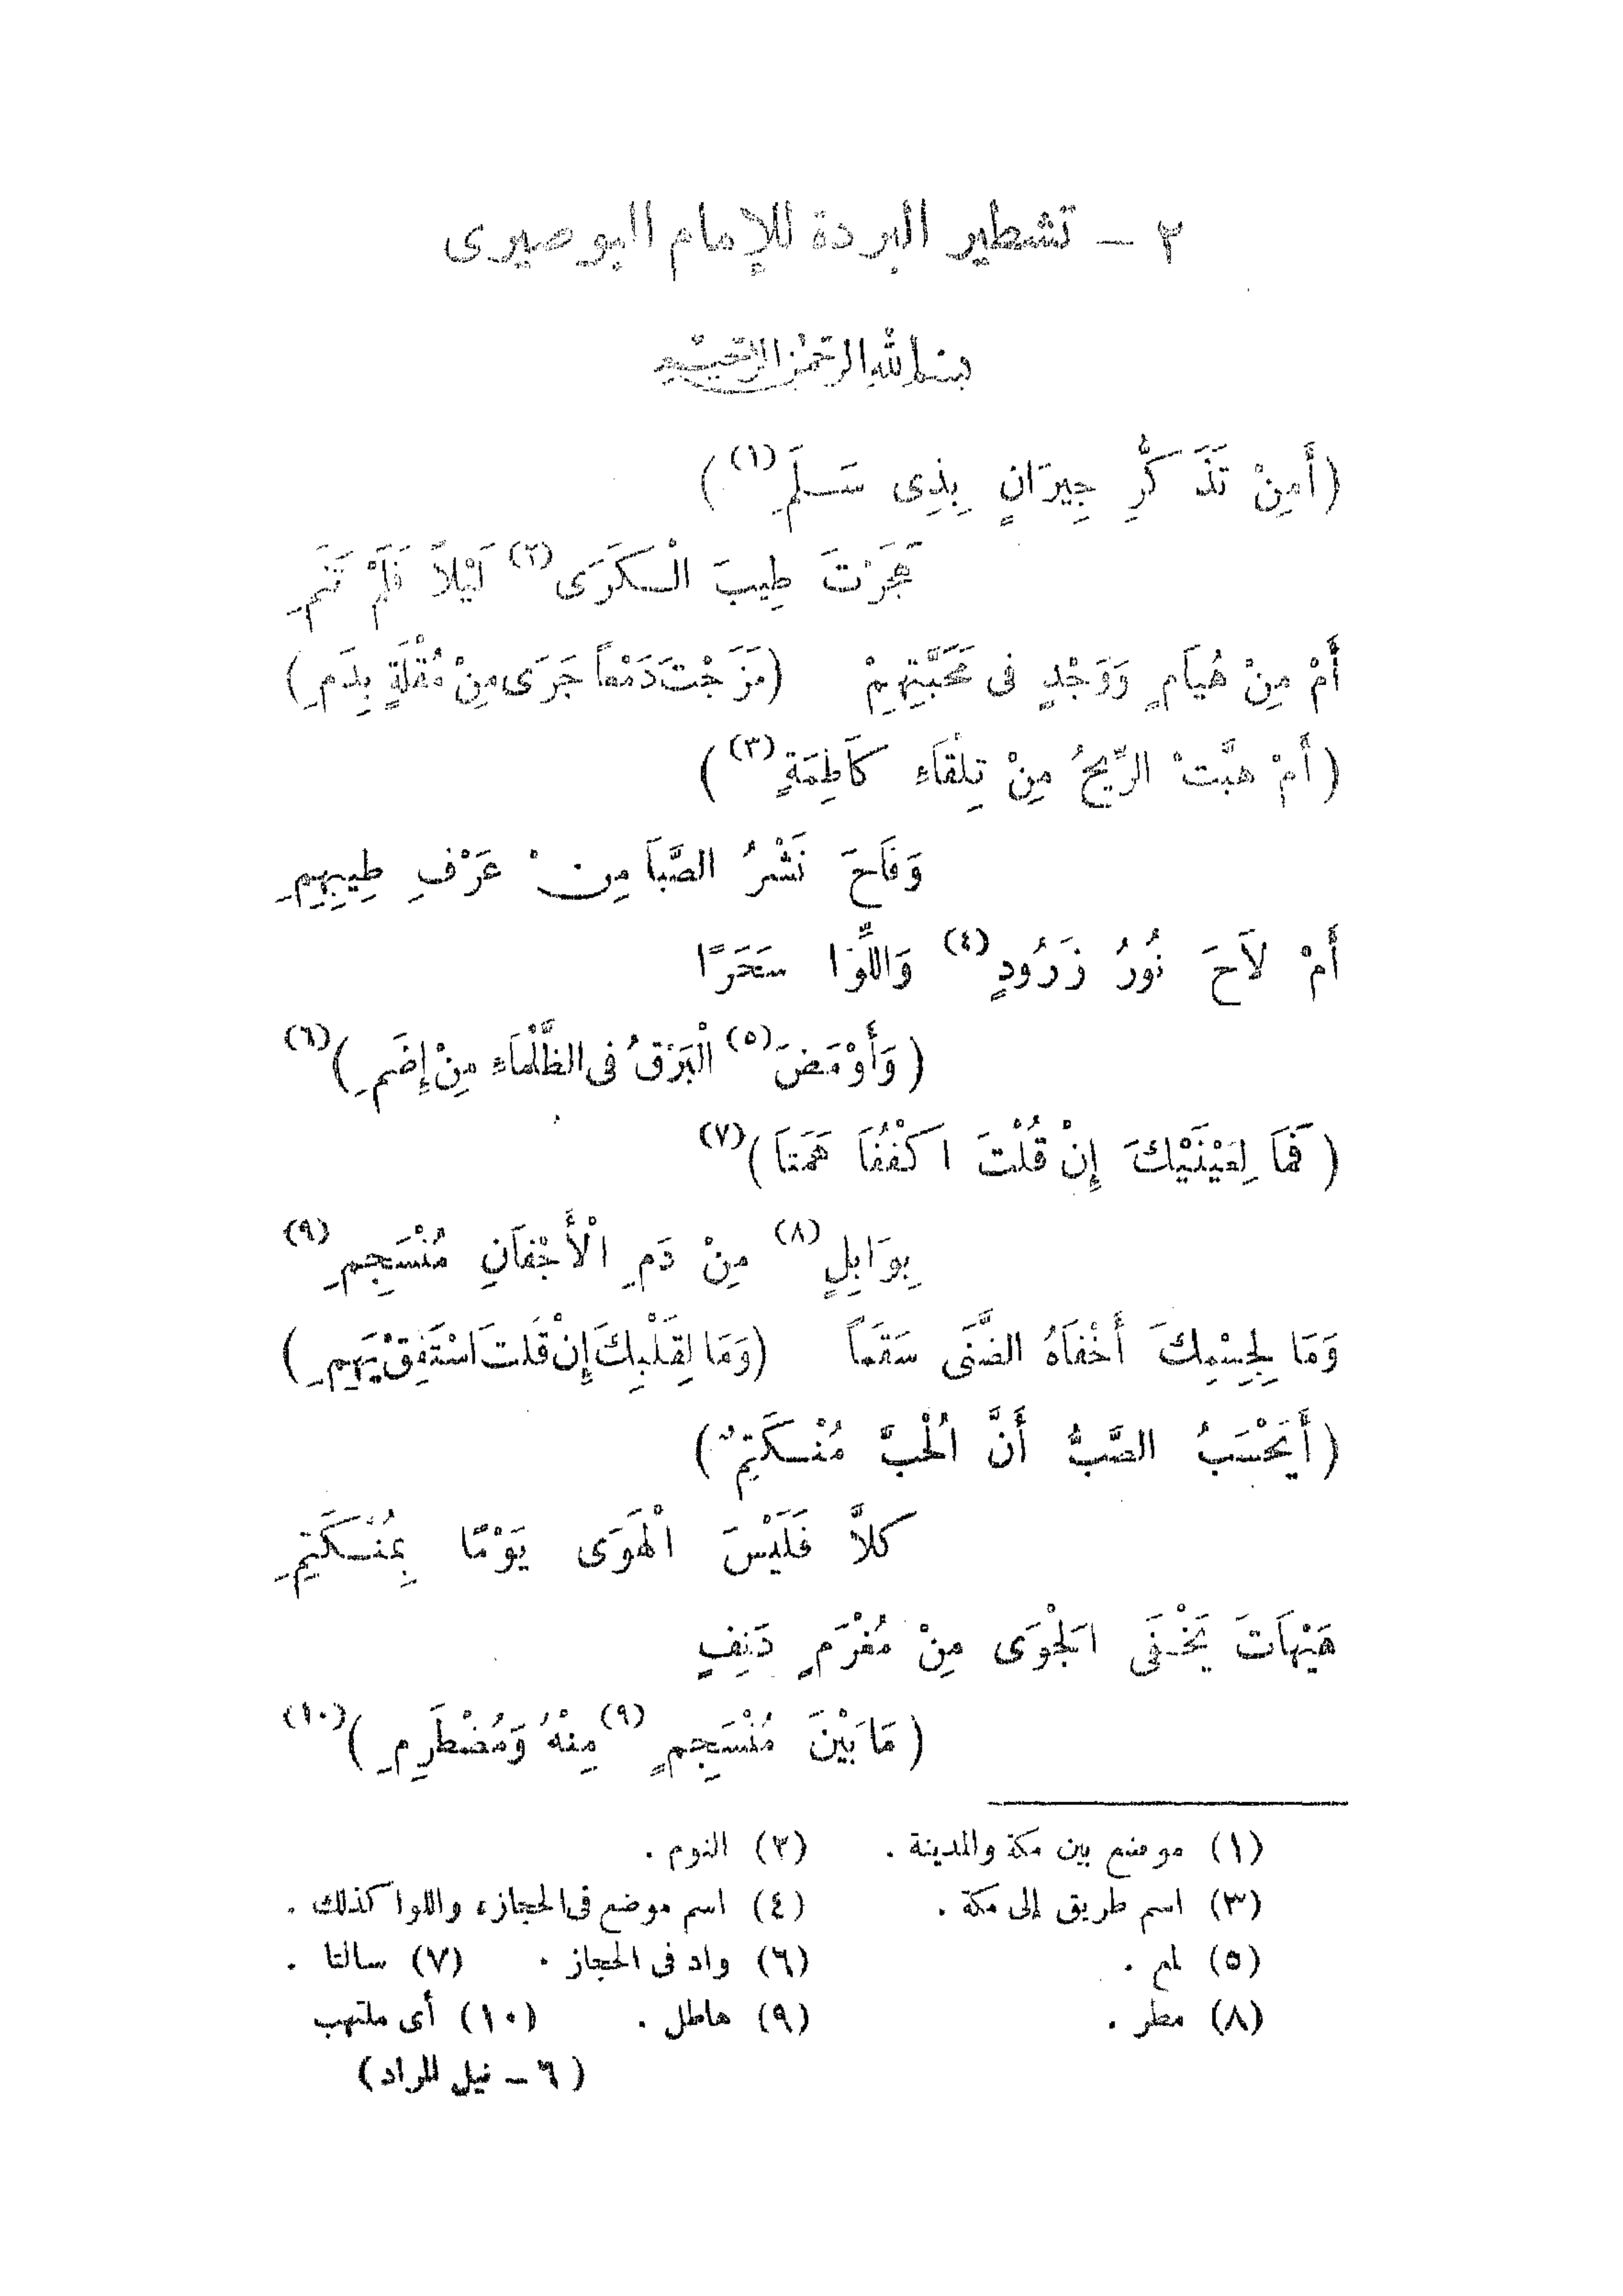 ٢ – تشطير البردة للإمام البوصيرى
بسم الله الرحمن الرحيم
(أَمِنْ تَذَكُّرِ جِيرَانٍ بِذِى سَلَمِ (١))
هَجَرْتَ طِيبَ الْكَرَى (٢) لَيْلاً فَلَمْ تَنَمِ
أَمْ مِنْ هُيَامٍ وَوَجْدٍ فى مَحَبَّتِهِمْ (مَزَجْتَ دَمْعاً جَرَى مِنْ مُقْلَةٍ بِدَمِ)
(أَمْ هَبَّتْ الرِّيحُ مِنْ تِلْقَاءِ كَاظِمَةٍ (٣))
وَفَاحَ نَشْرُ الصَّبَا مِنْ عَرْفِ طِيبِهِمِ
أَمْ لَاحَ نُورُ زَرُودٍ (٤) وَاللِّوَا سَحَرًا
(وَأَوْمَضَ (٥) الْبَرْقُ فى الظَّلْمَاءِ مِنْ إِضَمِ) (٦)
(فَمَا لِعَيْنَيْكَ إِنْ قُلْتَ اكْفُفَا هَمَتَا) (٧)
بِوَابِلٍ (٨) مِنْ دَمِ الْأَجْفَانِ مُنْسَجِمِ (٩)
وَمَا لِجِسْمِكَ أَخْفَاهُ الضَّنَى سَقَماً (وَمَا لِقَلْبِكَ إِنْ قُلْتَ اسْتَفِقْ يَهِمِ)
(أَيَحْسَبُ الصَّبُّ أَنَّ الْحُبَّ مُنْكَتِمٌ)
كلاَّ فَلَيْسَ الْهَوَى يَوْمًا بِمُنْكَتِمِ
هَيْهَاتَ يَخْفَى الجْوَى مِنْ مُغْرَمٍ دَنِفٍ
(مَا بَيْنَ مُنْسَجِمٍ (٩) مِنْهُ وَمُضْطَرِمِ) (١٠)
(١) موضع بين مكة والمدينة . (٢) النوم .
(٣) اسم طريق إلى مكة . (٤) اسم موضع فى الحجاز، واللوا كذلك .
(٥) لمع . (٦) واد فى الحجاز . (٧) سالتا .
(٨) مطر . (٩) هاطل . (١٠) أى ملتهب
(٦ – نيل المراد)